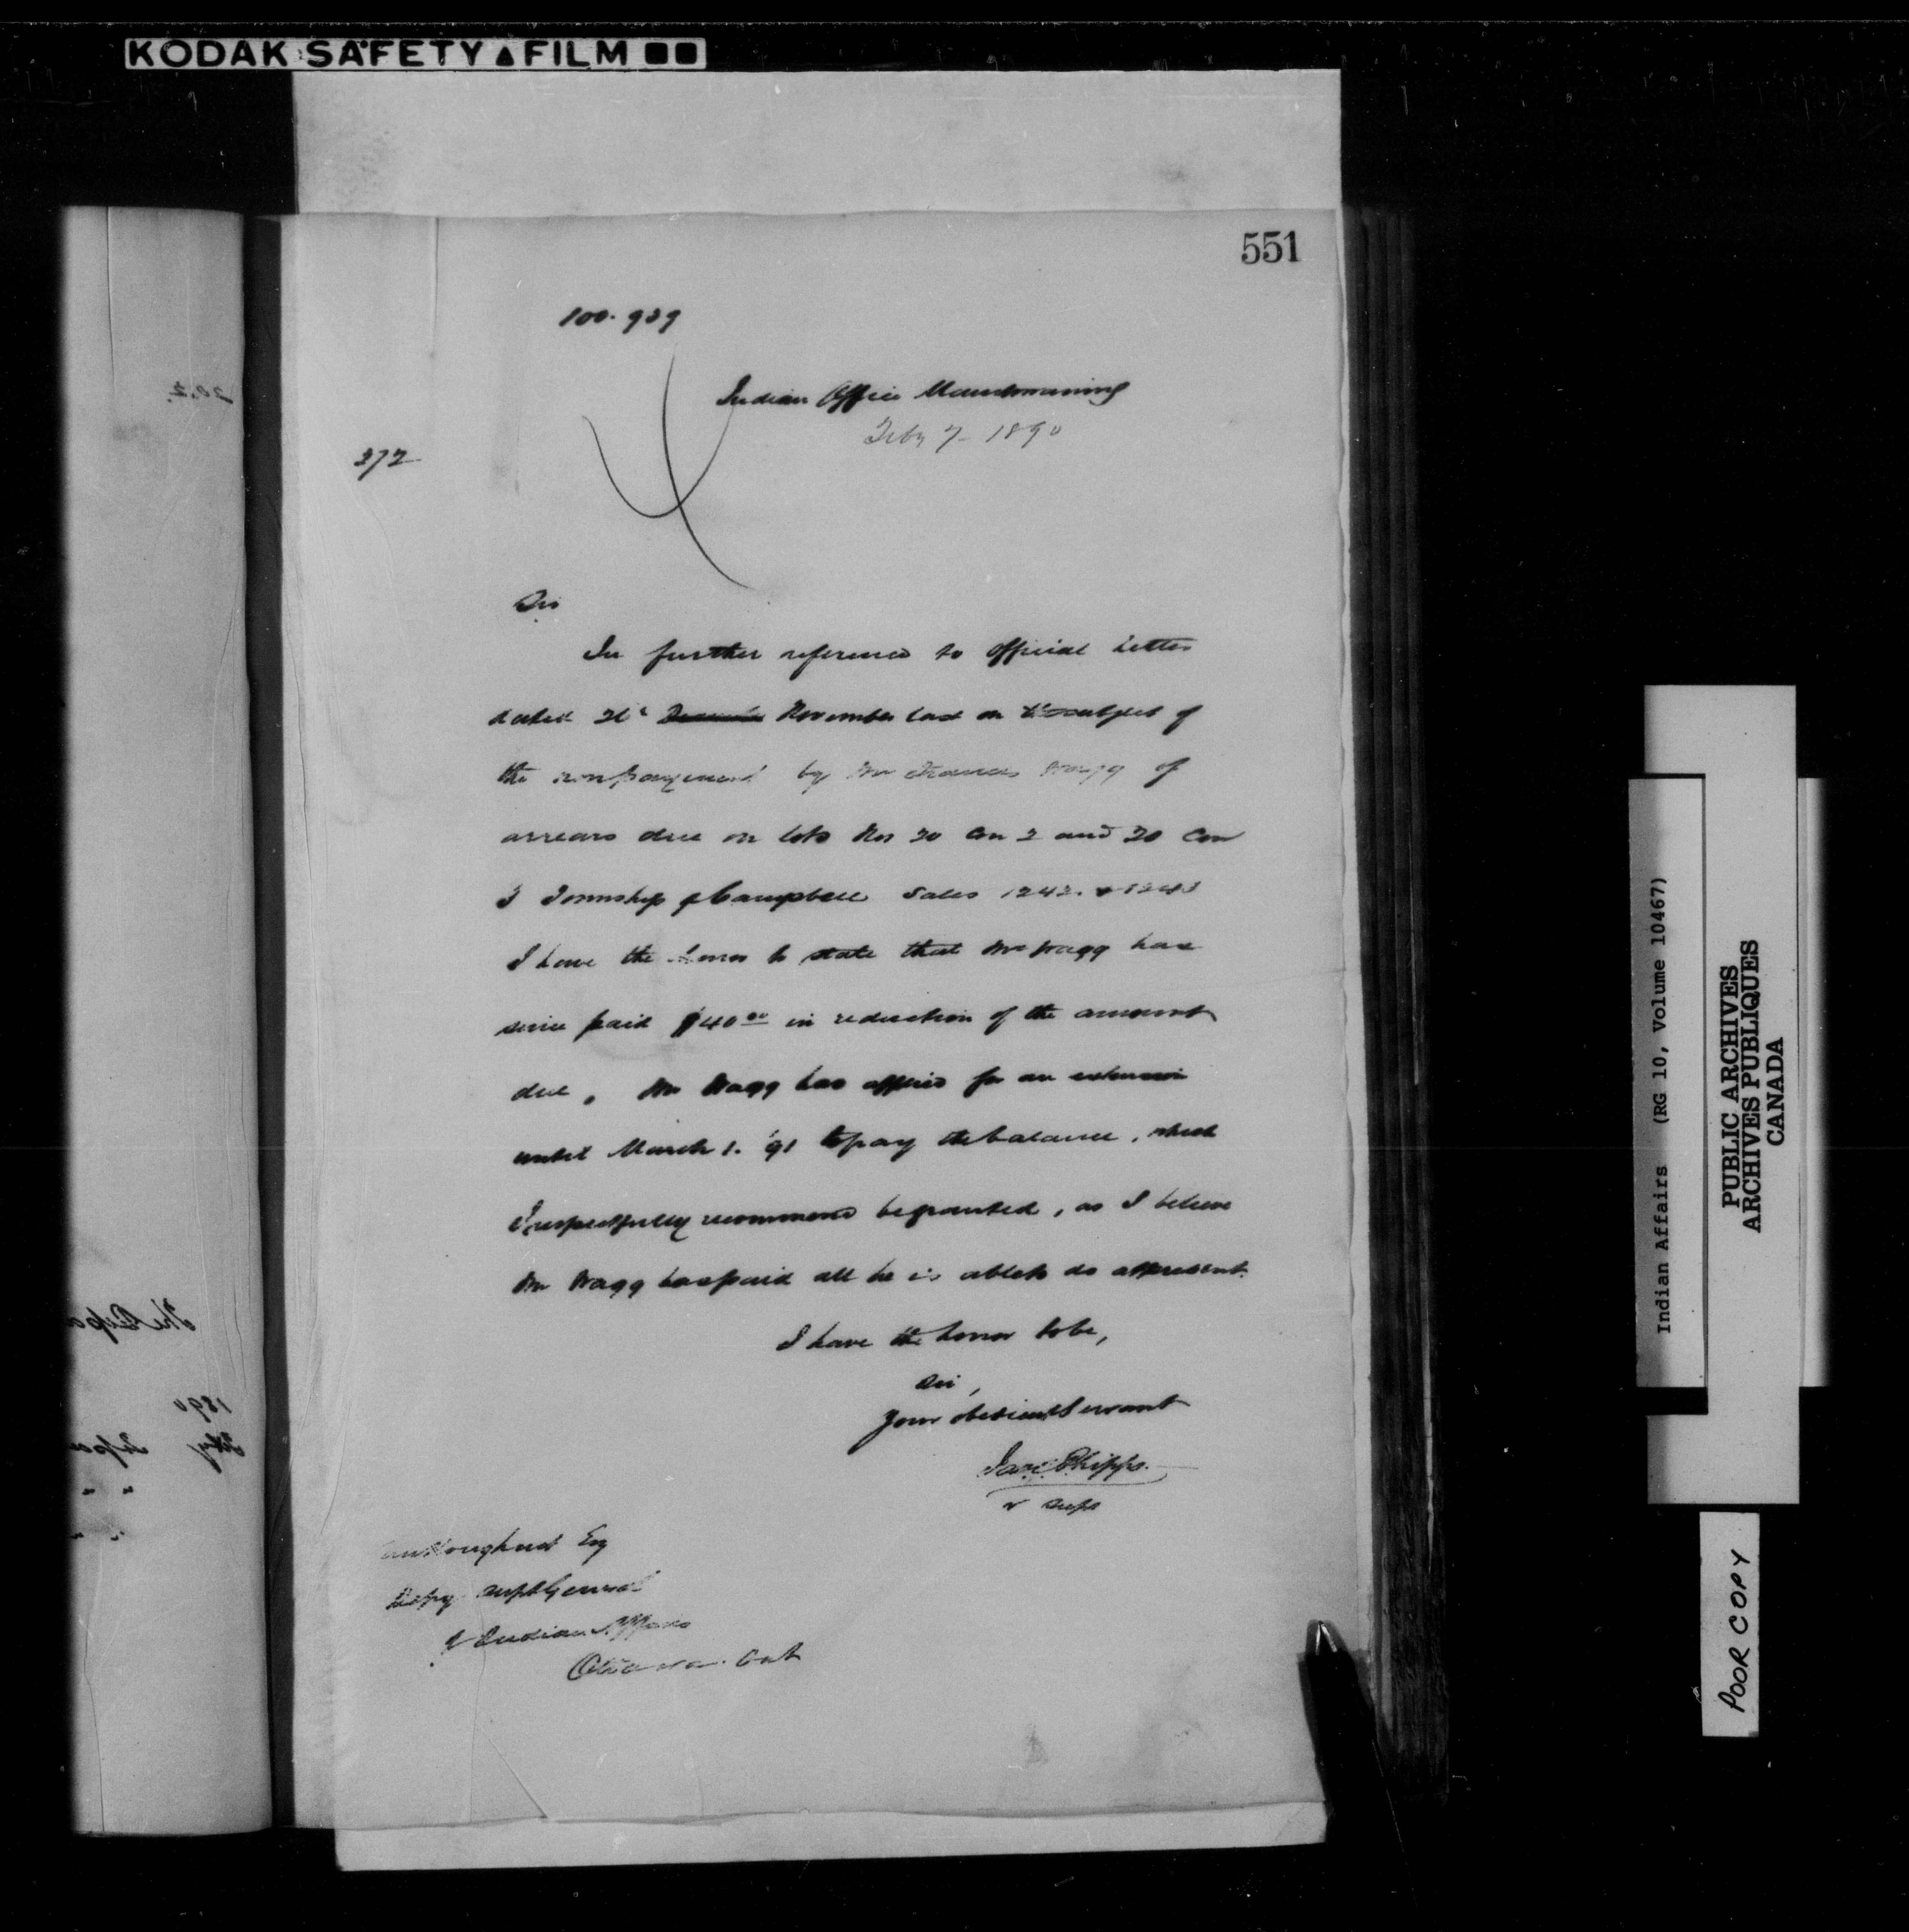 KODAK SAFETY ▲ FILM ■■
551
100.939
Indian Office Manitowaning
Feby 7 1890
372
Sir
In further reference to official letter
dated November last on the subject of
the non payment by Mr Francis Wagg of
arrears due on lots Nos 30 Con 2 and 30 Con
3 Township of Campbell Sales 1242 & 1243
I have the honor to state that Mr Wagg has
since paid $40 00 in reduction of the amount
due. Mr Wagg has applied for an extension
until March 1. '91 to pay the balance, which
I respectfully recommend be granted, as I believe
Mr Wagg has paid all he is able to do at present.
I have the honor to be,
Sir,
Your obedient Servant
Jas C Phipps.
V Supt
Vankoughnet Esq
Depy Supt General
of Indian Affairs
Ottawa. Ont
The Depa
1890
Feby
Indian Affairs (RG 10, Volume 10467)
PUBLIC ARCHIVES
ARCHIVES PUBLIQUES
CANADA
POOR COPY